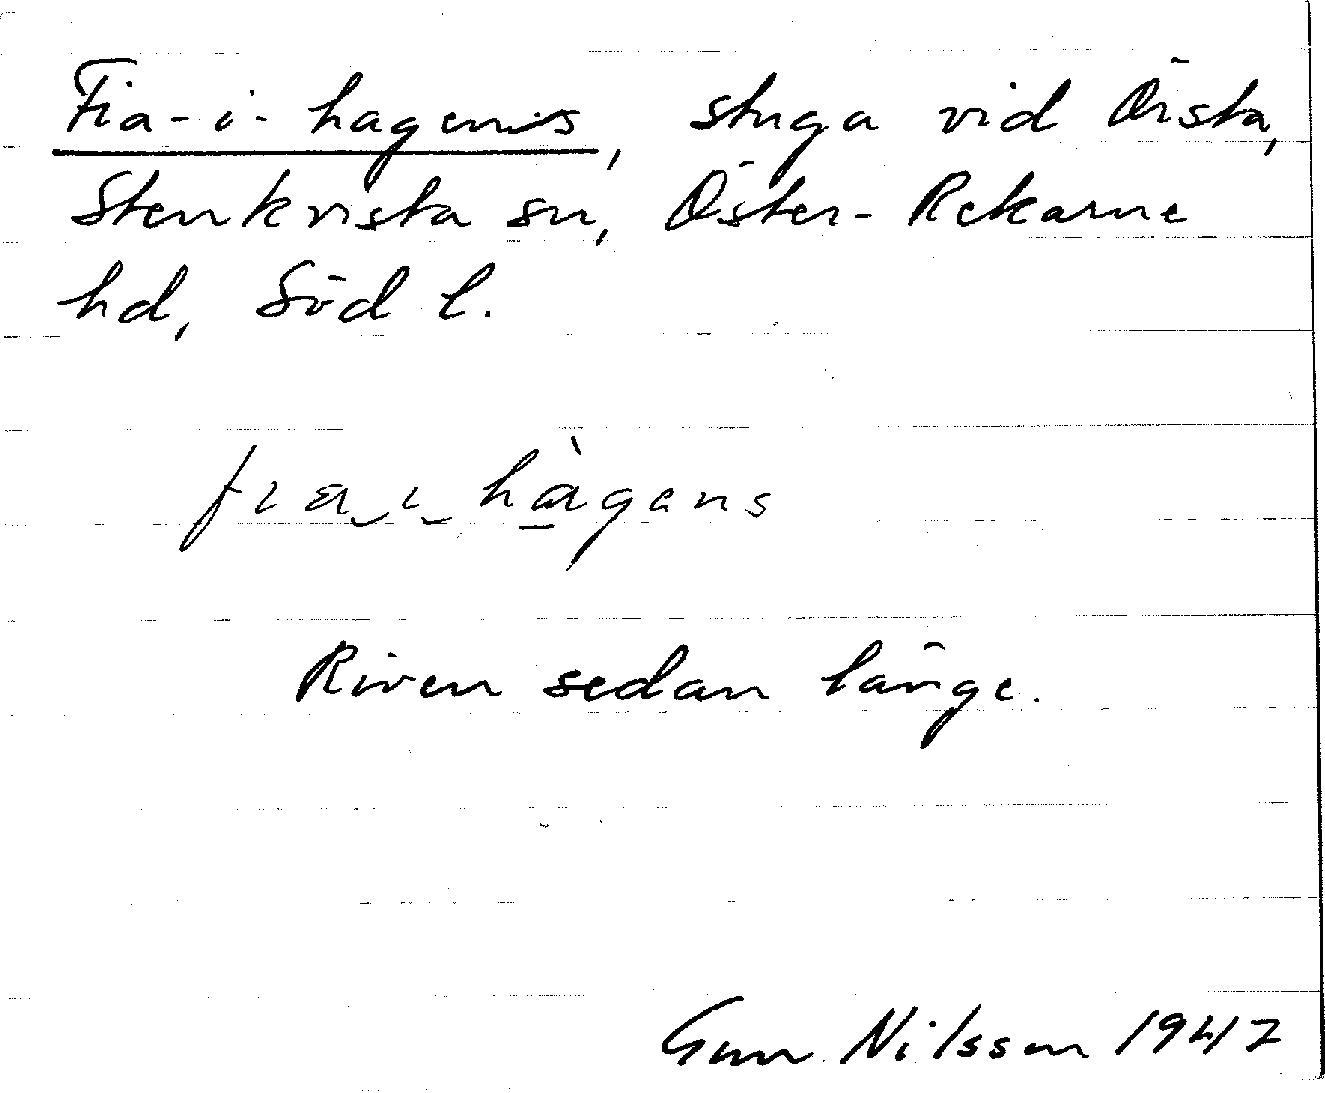 Fia-i-hagens, stuga vid Örsta,
Stenkvista sn, Öster-Rekarne
hd, Söd l.
fia i hàgens
Riven sedan länge.
Gun Nilsson 1947